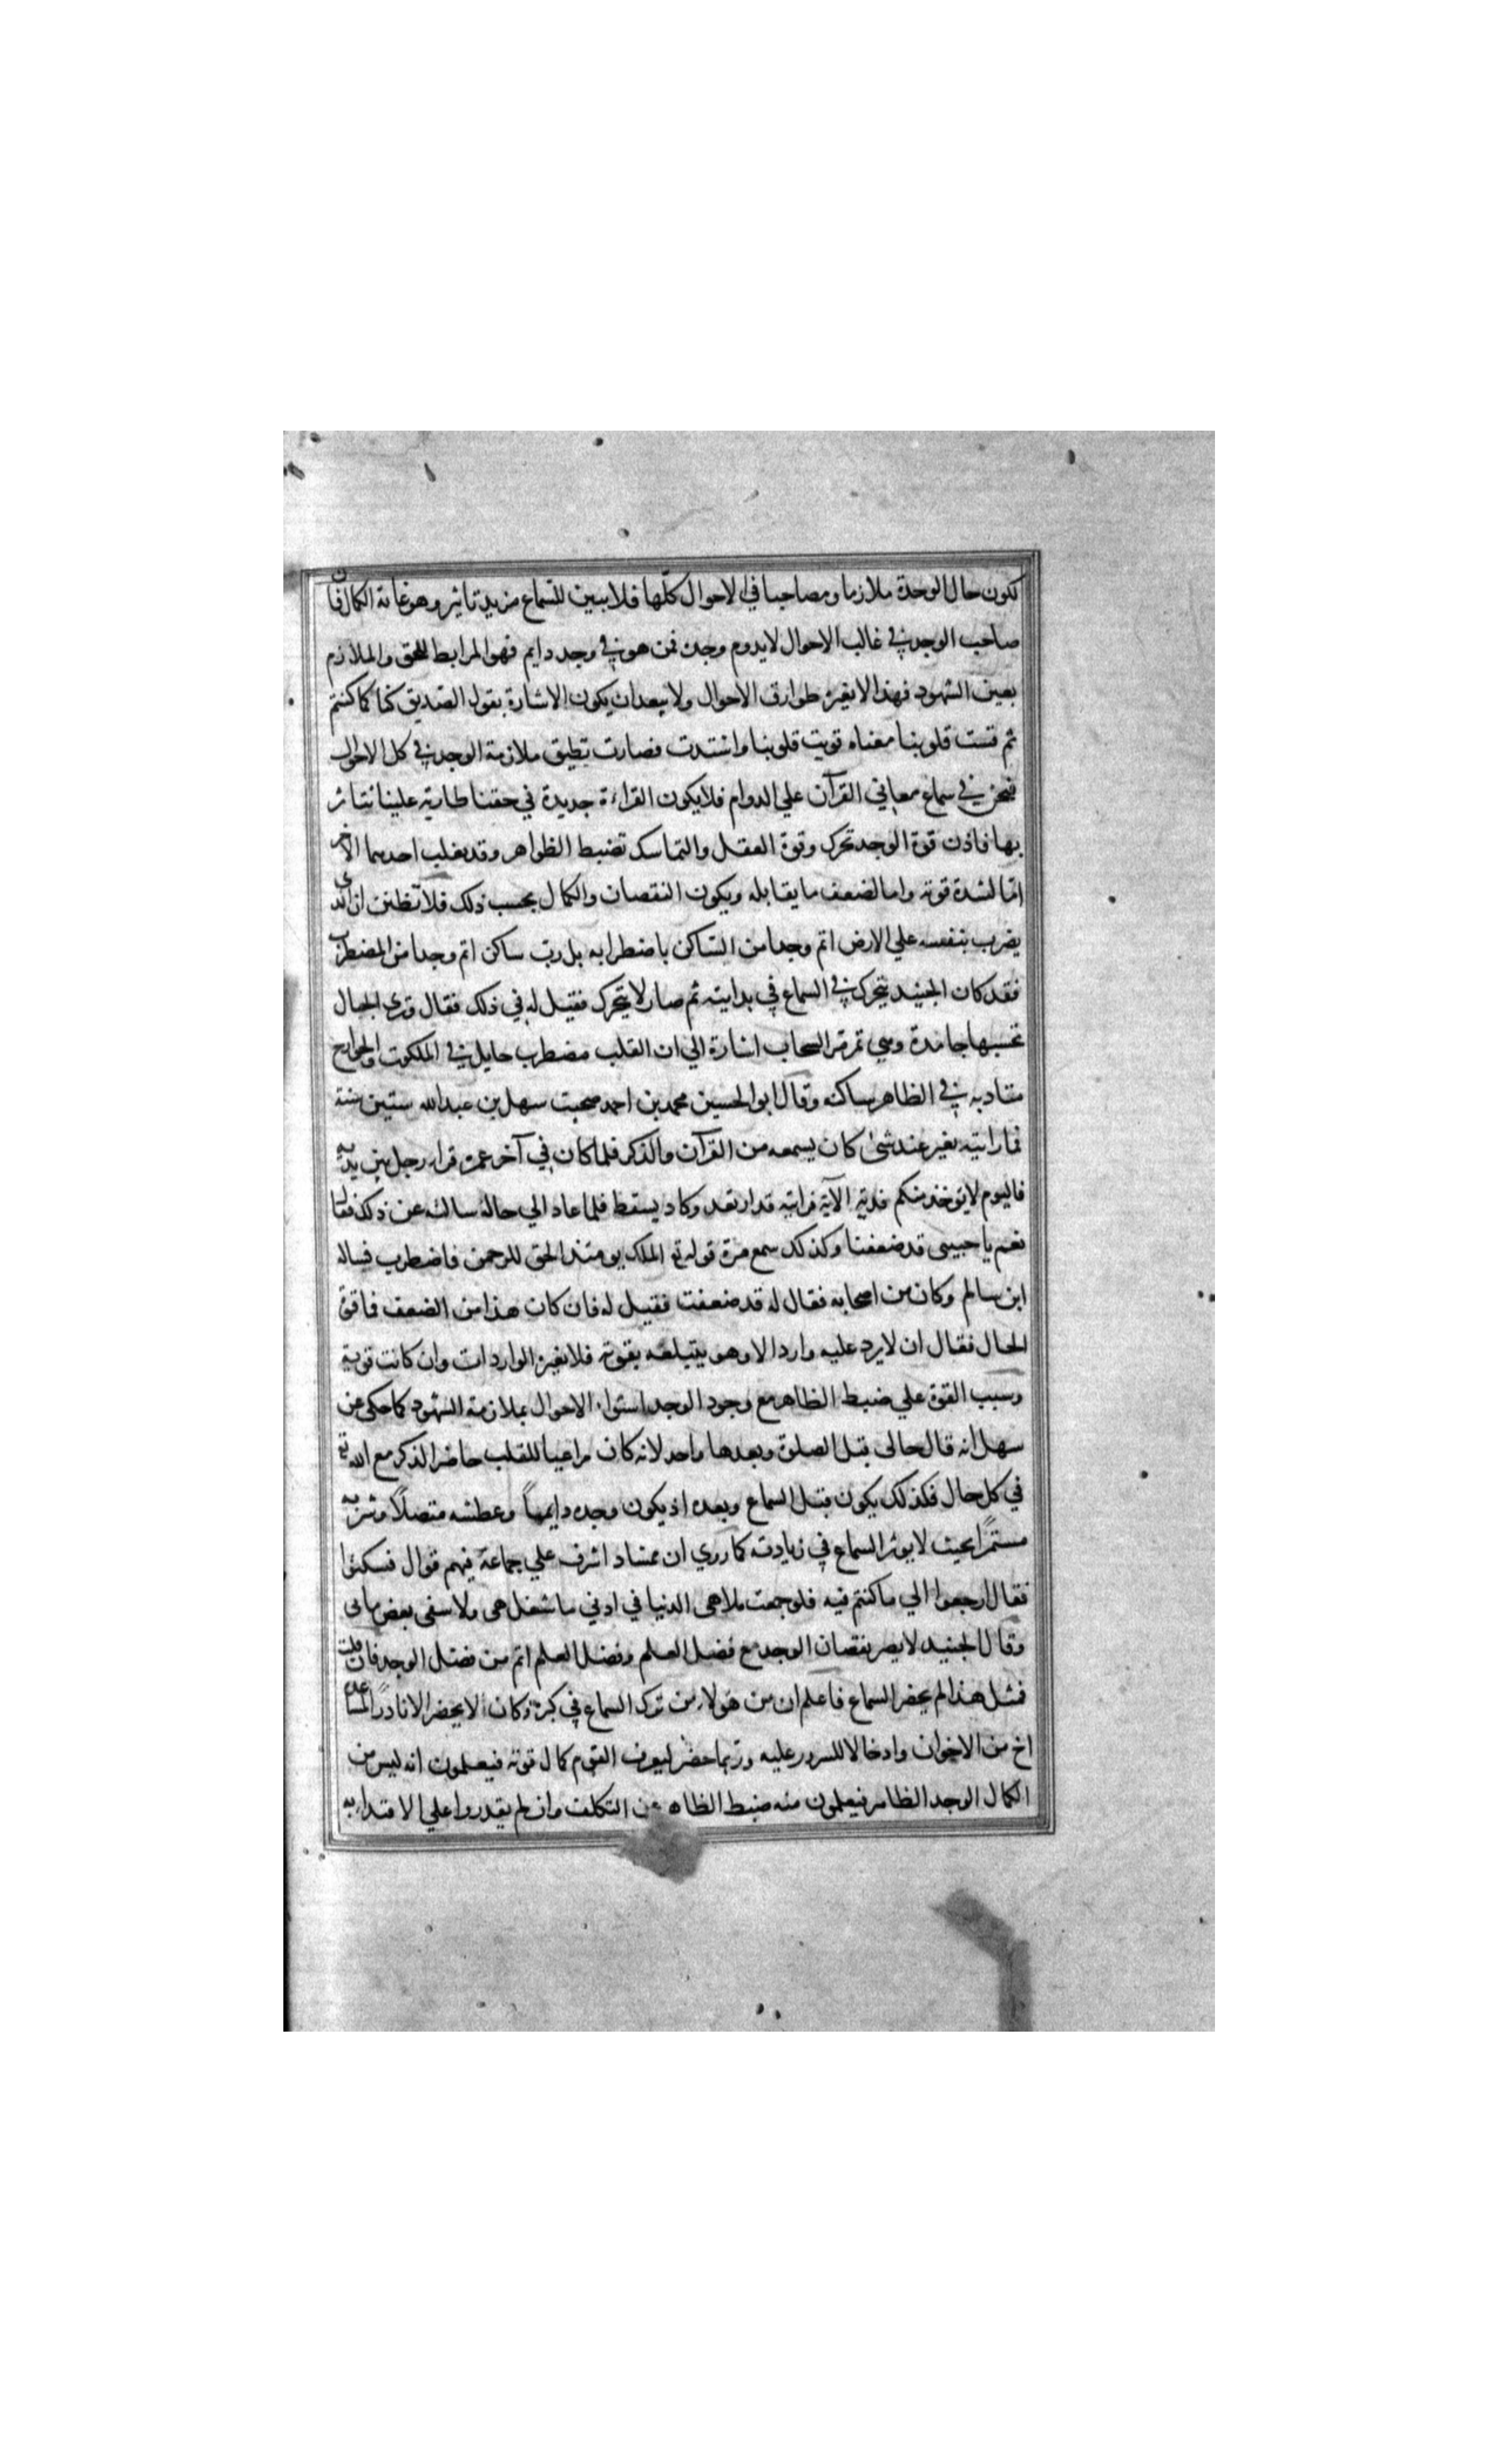 لكون حال الوحدة ملازما ومصاحبا في الاحوال كلها فلا يبين للسماع مزيد تاثير وهو غاية الكمال فان
صاحب الوجد في غالب الاحوال لا يدوم وجده فمن هو في وجد دايم فهو المرابط للحق والملازم
بعين الشهود فهذا لا يغيره طوارق الاحوال ولا يبعد ان يكون الاشارة بقول الصديق كنا كما كنتم
ثم قست قلوبنا معناه قويت قلوبنا واشتدت فصارت تطيق ملازمة الوجد في كل الاحوال
فنحن في سماع معاني القرآن علي الدوام فلا يكون القراءة جديدة في حقنا طارية علينا نتاثر
بها فاذن قوة الوجد تحرك وقوة العقل والتماسك تضبط الظواهر وقد يغلب احدهما الآخر
امّا لشدة قوته واما لضعف ما يقابله ويكون النقصان والكمال بحسب ذلك فلا تظنن ان الذى
يضرب بنفسه علي الارض اتم وجدا من الساكن باضطرابه بل ربّ ساكن اتم وجدا من المضطرب
فقد كان الجنيد يتحرك في السماع في بدايته ثم صار لا يتحرك فقيل له في ذلك فقال وترى الجبال
تحسبها جامدة وهي تمر مرّ السحاب اشارة الي ان القلب مضطرب جايل في الملكوت والجوارح
متادبه في الظاهر ساكنه وقال ابو الحسين محمد بن احمد صحبت سهل بن عبد الله ستين سنة
فما رايته تغير عند شئ كان يسمعه من القرآن والذكر فلما كان في آخر عمره قراء رجل بين يديه
فاليوم لا يوخذ منكم فدية الآية فرايته قد ارتعد وكاد يسقط فلما عاد الي حاله سالته عن ذلك فقال
نعم يا حبيبى قد ضعفنا وكذلك سمع مرة قوله تع الملك يومئذ الحق للرحمن فاضطرب فساله
ابن سالم وكان من اصحابه فقال له قد ضعفت فقيل له فان كان هذا من الضعف فما قوة
الحال فقال ان لا يرد عليه وارد الا وهو يبتلعه بقوته فلا تغيره الواردات وان كانت قوية
وسبب القوة علي ضبط الظاهر مع وجود الوجد استواء الاحوال بملازمة الشهود كما حكى عن
سهل انه قال حالى قبل الصلوة وبعدها واحد لانه كان مراعيا للقلب حاضر الذكر مع الله تع
في كل حال فكذلك يكون قبل السماع وبعده اذ يكون وجده دايمًا وعطشه متصلًا وشربه
مستمرًا بحيث لا يوثر السماع في زيادته كما روي ان ممشاد اشرف علي جماعة فيهم قوال فسكتوا
فقال ارجعوا الي ما كنتم فيه فلو جمعت ملاهى الدنيا في اذني ما شغل همى ولا شفى بعض ما بى
وقال الجنيد لا يضر نقصان الوجد مع فضل العلم وفضل العلم اتم من فضل الوجد فان قلت
فمثل هذا لم يحضر السماع فاعلم ان من هولاء من ترك السماع في كبره وكان لا يحضر الا نادرًا لمساعدة
اخ من الاخوان وادخالا للسرور عليه وربما حضر ليعرف القوم كمال قوته فيعلمون انه ليس من
الكمال الوجد الظاهر فيعلمون منه ضبط الظاهر عن التكلف وان لم يقدروا علي الاقتداء به